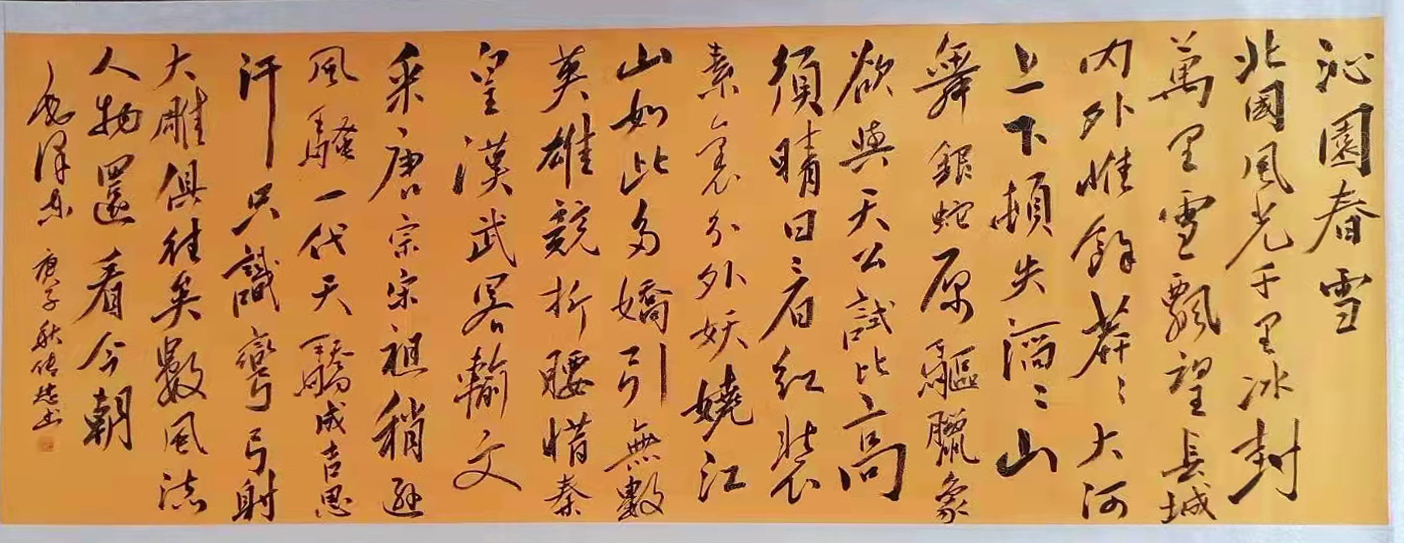 沁園春雪
北國風光千里冰封
萬里雪飄望長城
内外惟餘莽〻大河
上下頓失滔〻山
舞銀蛇原驅臘象
欲與天公試比高
須晴日看红裝
素裹分外妖嬈江
山如此多嬌引無數
英雄競折腰惜秦
皇漢武畧輸文
采唐宗宋祖稍遜
風騷一代天驕成吉思
汗只識彎弓射
大雕俱往矣數風流
人物還看今朝
毛澤东 庚子秋 书